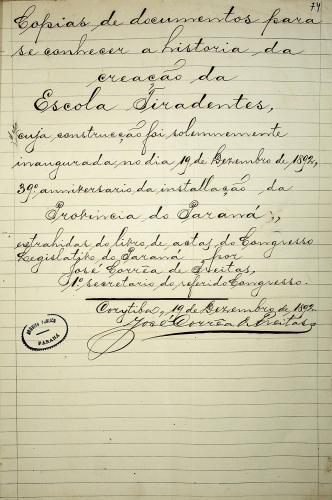 74
Copias de documentos para
se conhecer a historia da
creação da
Escola Tiradentes,
cuja construcção foi solemnemente
inaugurada no dia 19 de Dezembro de 1892,
39º anniversario da installação da
Provincia do Paraná,
extrahidas do livro de actas do Congresso
Legislativo do Paraná por
José Corrêa de Freitas,
1º secretario do referido Congresso.
Corytiba, 19 de Dezembro de 1892.
José Corrêa de Freitas
ARCHIVO PUBLICO
PARANÁ